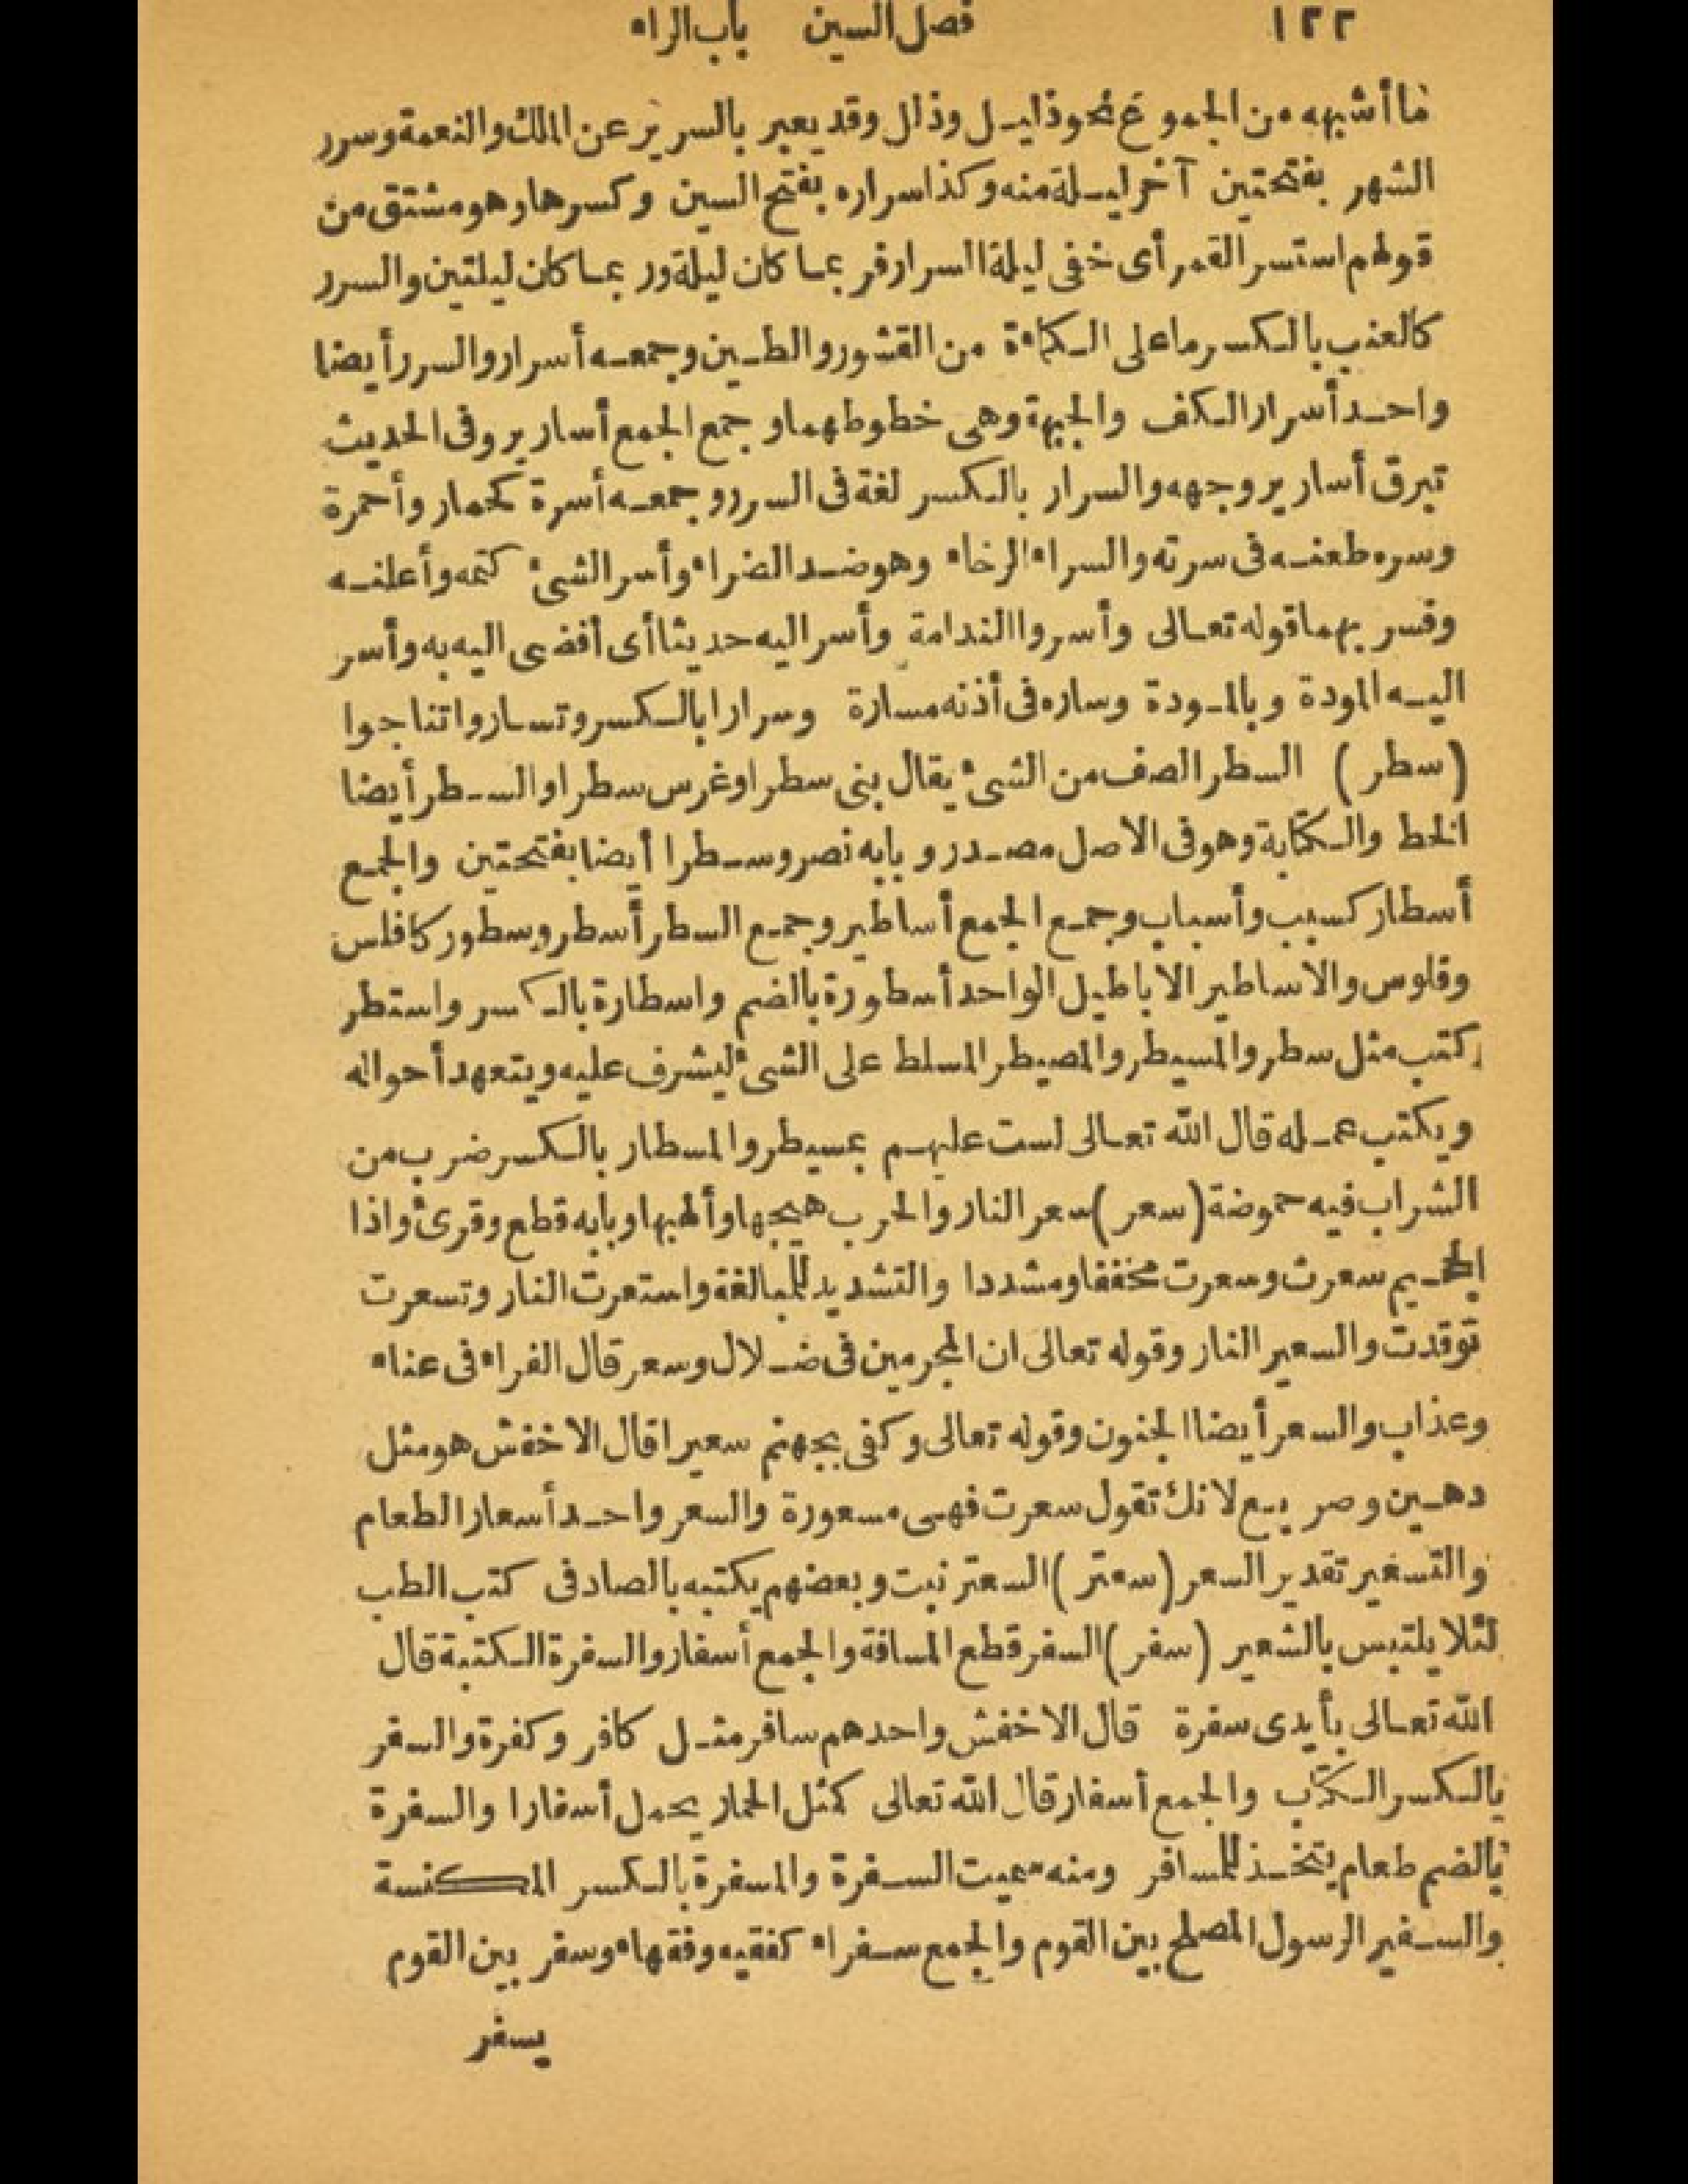 ١٢٢ فصل السين باب الراء
ما أشبهه من الجموع نحو ذليل وذلل وقد يعبر بالسرير عن الملك والنعمة وسرر
الشهر بفتحتين آخر ليلة منه وكذا سراره بفتح السين وكسرها وهو مشتق من
قولهم استسر القمر أى خفى ليلة السرار فربما كان ليلة وربما كان ليلتين والسرر
كالعنب بالكسر ما على الكمأة من القشور والطين وجمعه أسرار والسرر أيضا
واحد أسرار الكف والجبهة وهى خطوطهما وجمع الجمع أسارير وفى الحديث
تبرق أسارير وجهه والسرار بالكسر لغة فى السرر وجمعه أسرة كحمار وأحمرة
وسره طعنه فى سرته والسراء الرخاء وهو ضد الضراء وأسر الشئ كتمه وأعلنه
وفسر بهما قوله تعالى وأسروا الندامة وأسر اليه حديثا أى أفضى اليه به وأسر
اليه المودة وبالمودة وساره فى أذنه مسارة وسرارا بالكسر وتساروا تناجوا
(سطر) السطر الصف من الشئ يقال بنى سطرا وغرس سطرا والسطر أيضا
الخط والكتابة وهو فى الاصل مصدر وبابه نصر وسطرا أيضا بفتحتين والجمع
أسطار كسبب وأسباب وجمع الجمع أساطير وجمع السطر أسطر وسطور كافلس
وفلوس والاساطير الاباطيل الواحد أسطورة بالضم واسطارة بالكسر واستطر
كتب مثل سطر والمسيطر والمصيطر المسلط على الشئ ليشرف عليه ويتعهد أحواله
ويكتب عمله قال الله تعالى لست عليهم بمسيطر والمسطار بالكسر ضرب من
الشراب فيه حموضة (سعر) سعر النار والحرب هيجها وألهبها وبابه قطع وقرئ واذا
الجحيم سعرت وسعرت مخففا ومشددا والتشديد للمبالغة واستعرت النار وتسعرت
توقدت والسعير النار وقوله تعالى ان المجرمين فى ضلال وسعر قال الفراء فى عناء
وعذاب والسعر أيضا الجنون وقوله تعالى وكفى بجهنم سعيرا قال الاخفش هو مثل
دهين وصريع لانك تقول سعرت فهى مسعورة والسعر واحد أسعار الطعام
والتسعير تقدير السعر (سعتر) السعتر نبت وبعضهم يكتبه بالصاد فى كتب الطب
لئلا يلتبس بالشعير (سفر) السفر قطع المسافة والجمع أسفار والسفرة الكتبة قال
الله تعالى بأيدى سفرة قال الاخفش واحدهم سافر مثل كافر وكفرة والسفر
بالكسر الكتاب والجمع أسفار قال الله تعالى كمثل الحمار يحمل أسفارا والسفرة
بالضم طعام يتخذ للمسافر ومنه سميت السفرة والمسفرة بالكسر المكنسة
والسفير الرسول المصلح بين القوم والجمع سفراء كفقيه وفقهاء وسفر بين القوم
يسفر